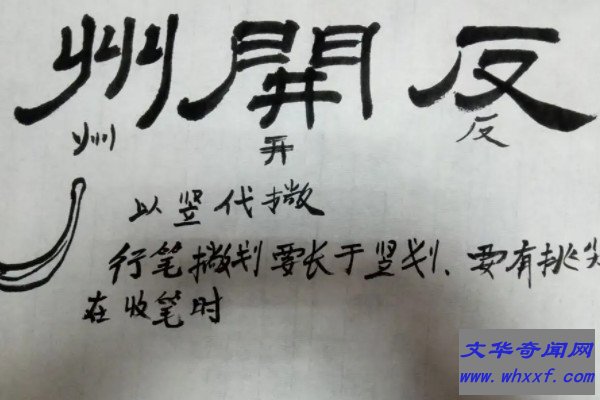 州 開 反
州 开 反
以竖代撇
行笔撇划要长于竖划、要有挑尖
在收笔时
文华奇闻网
www.whxxf.com